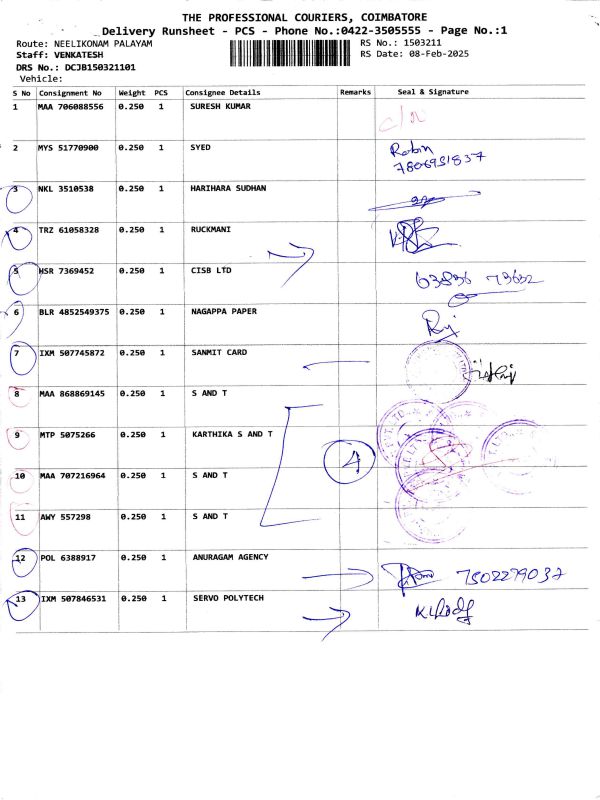 THE PROFESSIONAL COURIERS, COIMBATORE
Delivery Runsheet - PCS - Phone No.:0422-3505555 - Page No.:1
Route: NEELIKONAM PALAYAM RS No.: 1503211
Staff: VENKATESH RS Date: 08-Feb-2025
DRS No.: DCJB150321101
Vehicle:
S No Consignment No Weight PCS Consignee Details Remarks Seal & Signature
1 MAA 706088556 0.250 1 SURESH KUMAR
2 MYS 51770900 0.250 1 SYED Robin
7806951837
3 NKL 3510538 0.250 1 HARIHARA SUDHAN
4 TRZ 61058328 0.250 1 RUCKMANI
5 HSR 7369452 0.250 1 CISB LTD 63836 73632
6 BLR 4852549375 0.250 1 NAGAPPA PAPER
7 IXM 507745872 0.250 1 SANMIT CARD
8 MAA 868869145 0.250 1 S AND T
9 MTP 5075266 0.250 1 KARTHIKA S AND T
4
10 MAA 707216964 0.250 1 S AND T
11 AWY 557298 0.250 1 S AND T
12 POL 6388917 0.250 1 ANURAGAM AGENCY 7502279037
13 IXM 507846531 0.250 1 SERVO POLYTECH